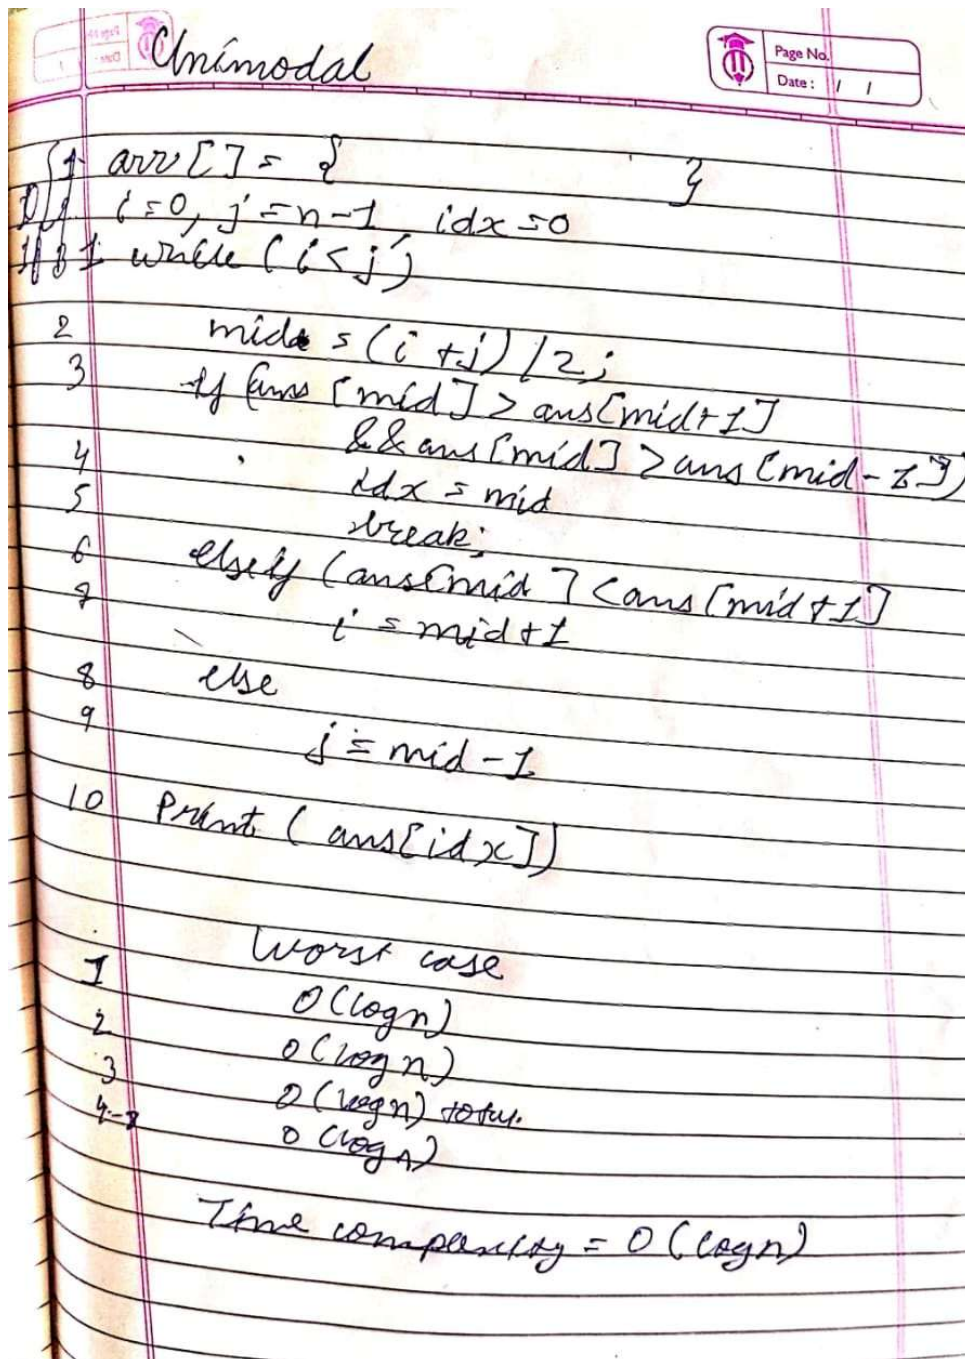 Unimodal
Page No.
Date : / /
1 arr[] = { }
i=0, j=n-1 idx=0
1 while (i<j)
2 mid = (i+j)/2;
3 if (ans[mid] > ans[mid+1]
&& ans[mid] > ans[mid-1])
4 idx = mid
5 break;
6 elseif (ans[mid] < ans[mid+1]
7 i = mid+1
8 else
9 j = mid-1
10 Print (ans[idx])
Worst case
1 O(logn)
2 O(logn)
3 O(logn)
4-8 O(logn)
Time complexity = O(logn)